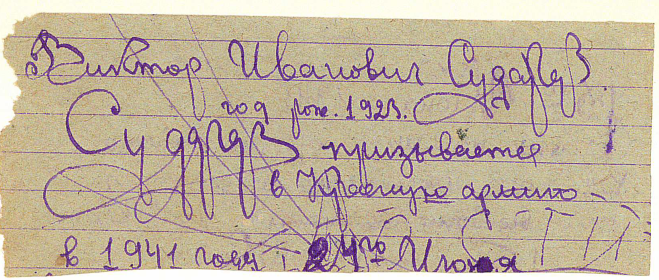 Виктор Иванович Сударев
год рож. 1923.
Сударев призывается
в Красную армию -
в 1941 году 24го Июня